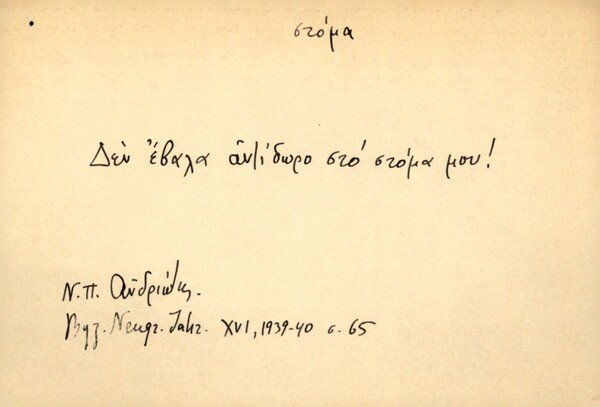 στόμα
Δεν έβαλα ἀντίδωρο στό στόμα μου!
Ν. Π. Ἀνδριώτης.
Byz. Neugr. Jahr. XVI, 1939-40 σ. 65